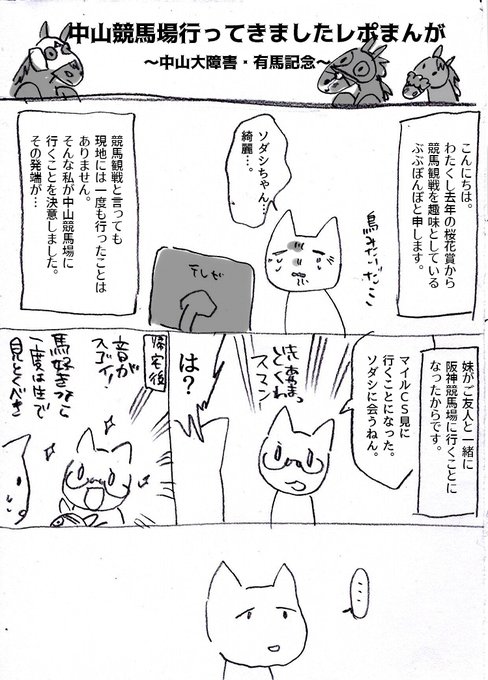 中山競馬場行ってきましたレポまんが
~中山大障害・有馬記念~
こんにちは。
わたくし去年の桜花賞から
競馬観戦を趣味としている
ぶぶぽんぽと申します。
ソダシちゃん…
綺麗…。
テレビ
競馬観戦と言っても
現地には一度も行ったことは
ありません。
そんな私が中山競馬場に
行くことを決意しました。
その発端が…
妹がご友人と一緒に
阪神競馬場に行くことに
なったからです。
マイルCS見に
行くことになった。
ソダシに会うねん。
スマン
は？
帰宅後
音が
スゴイ！
馬好きなら
一度は生で
見とくべき